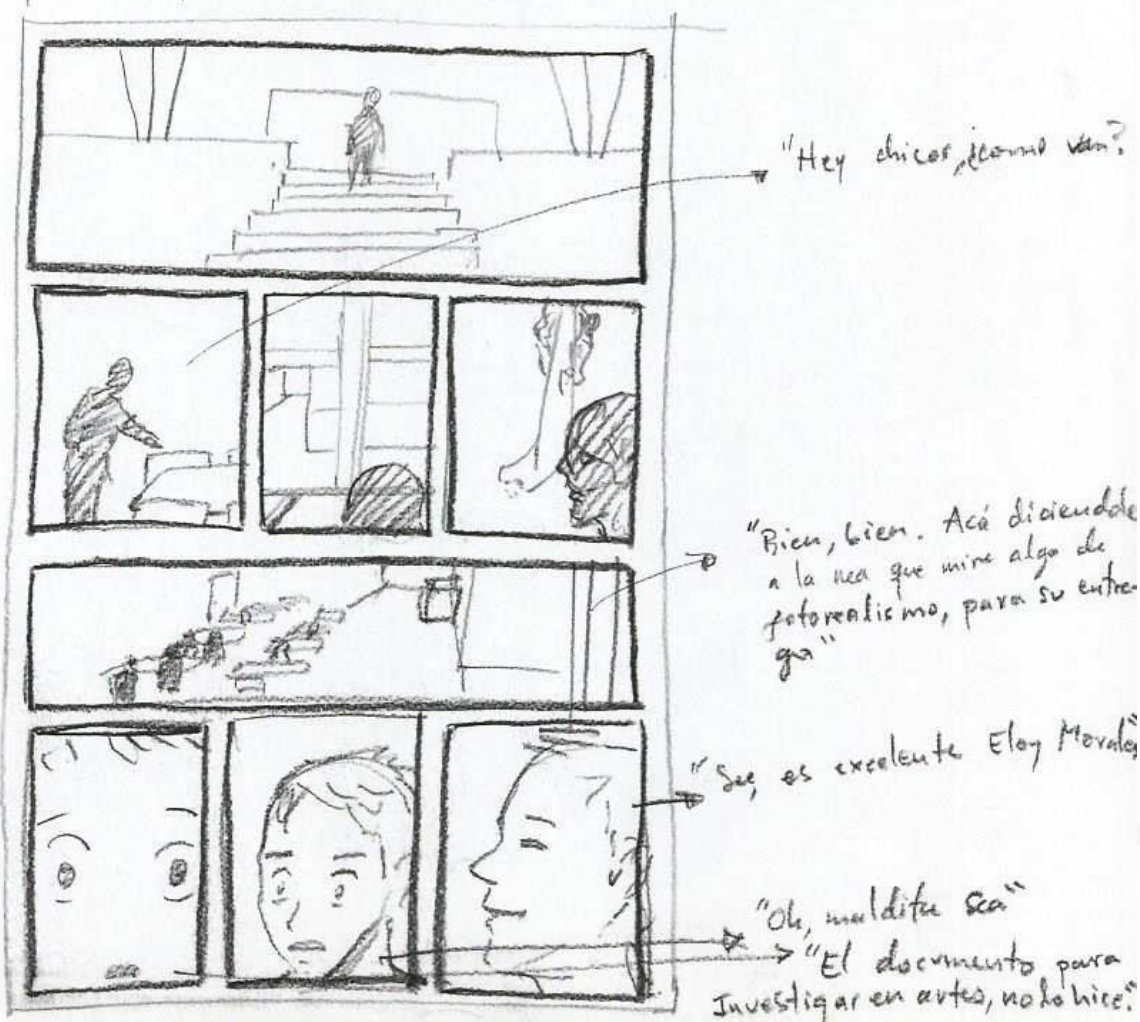 "Hey chicos, ¿como van?
"Bien, bien. Acá diciendole
a la nea que mire algo de
fotorealismo, para su entre-
ga"
"See, es excelente Eloy Morales"
"Oh, maldita sea"
"El documento para
Investigar en artes, no lo hice."